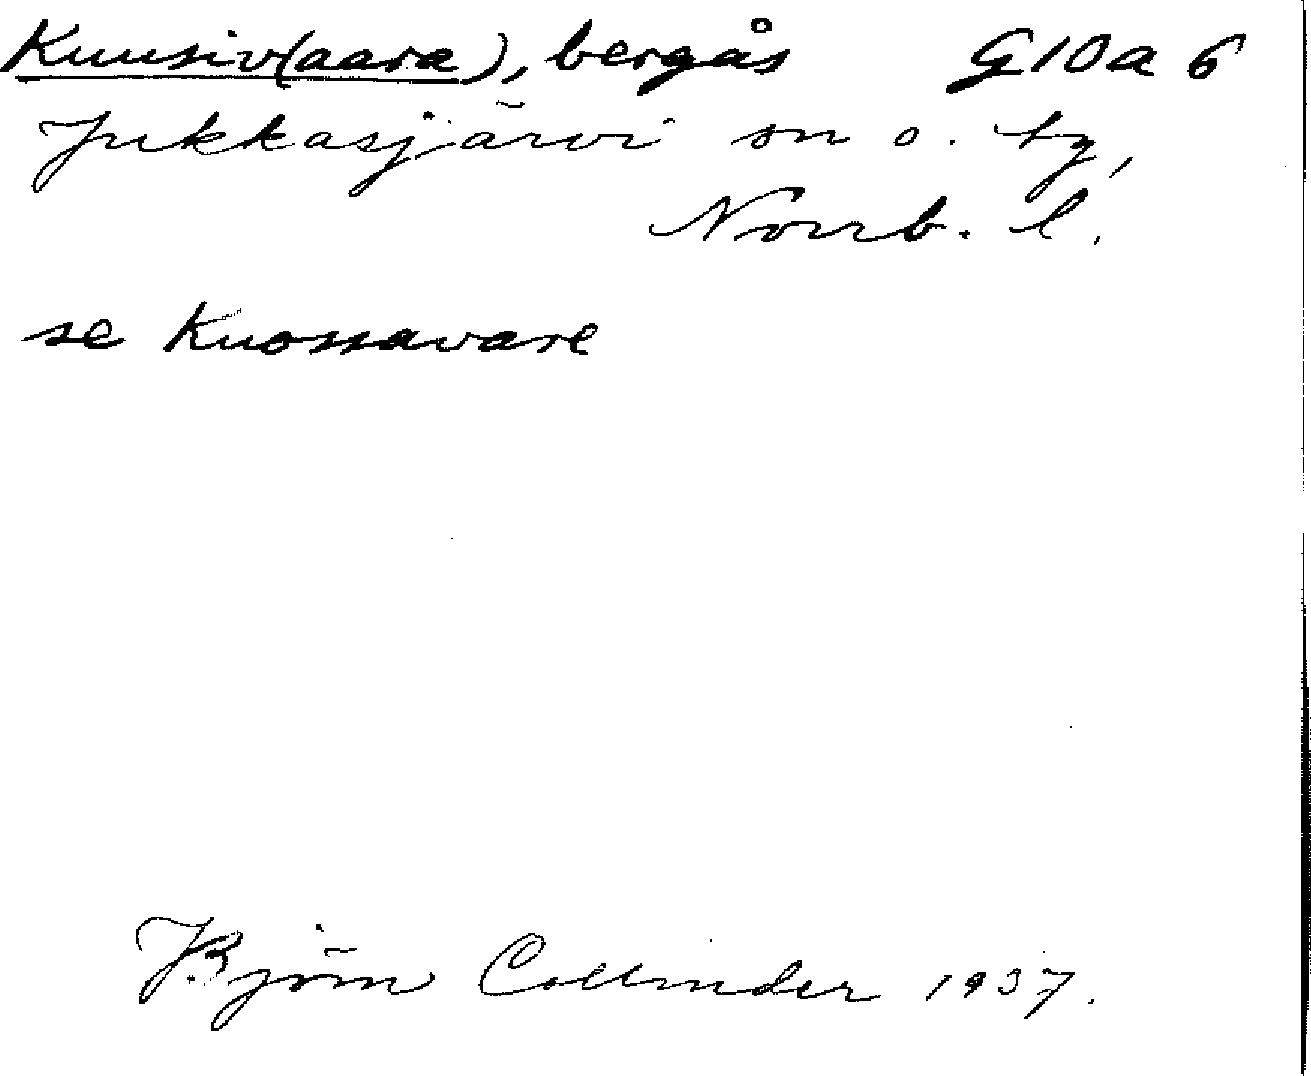 Kuusiv(aara), bergås G10a 6
Jukkasjärvi sn o. tg,
Norrb. l.
se Kuossavare
Björn Collinder 1937.